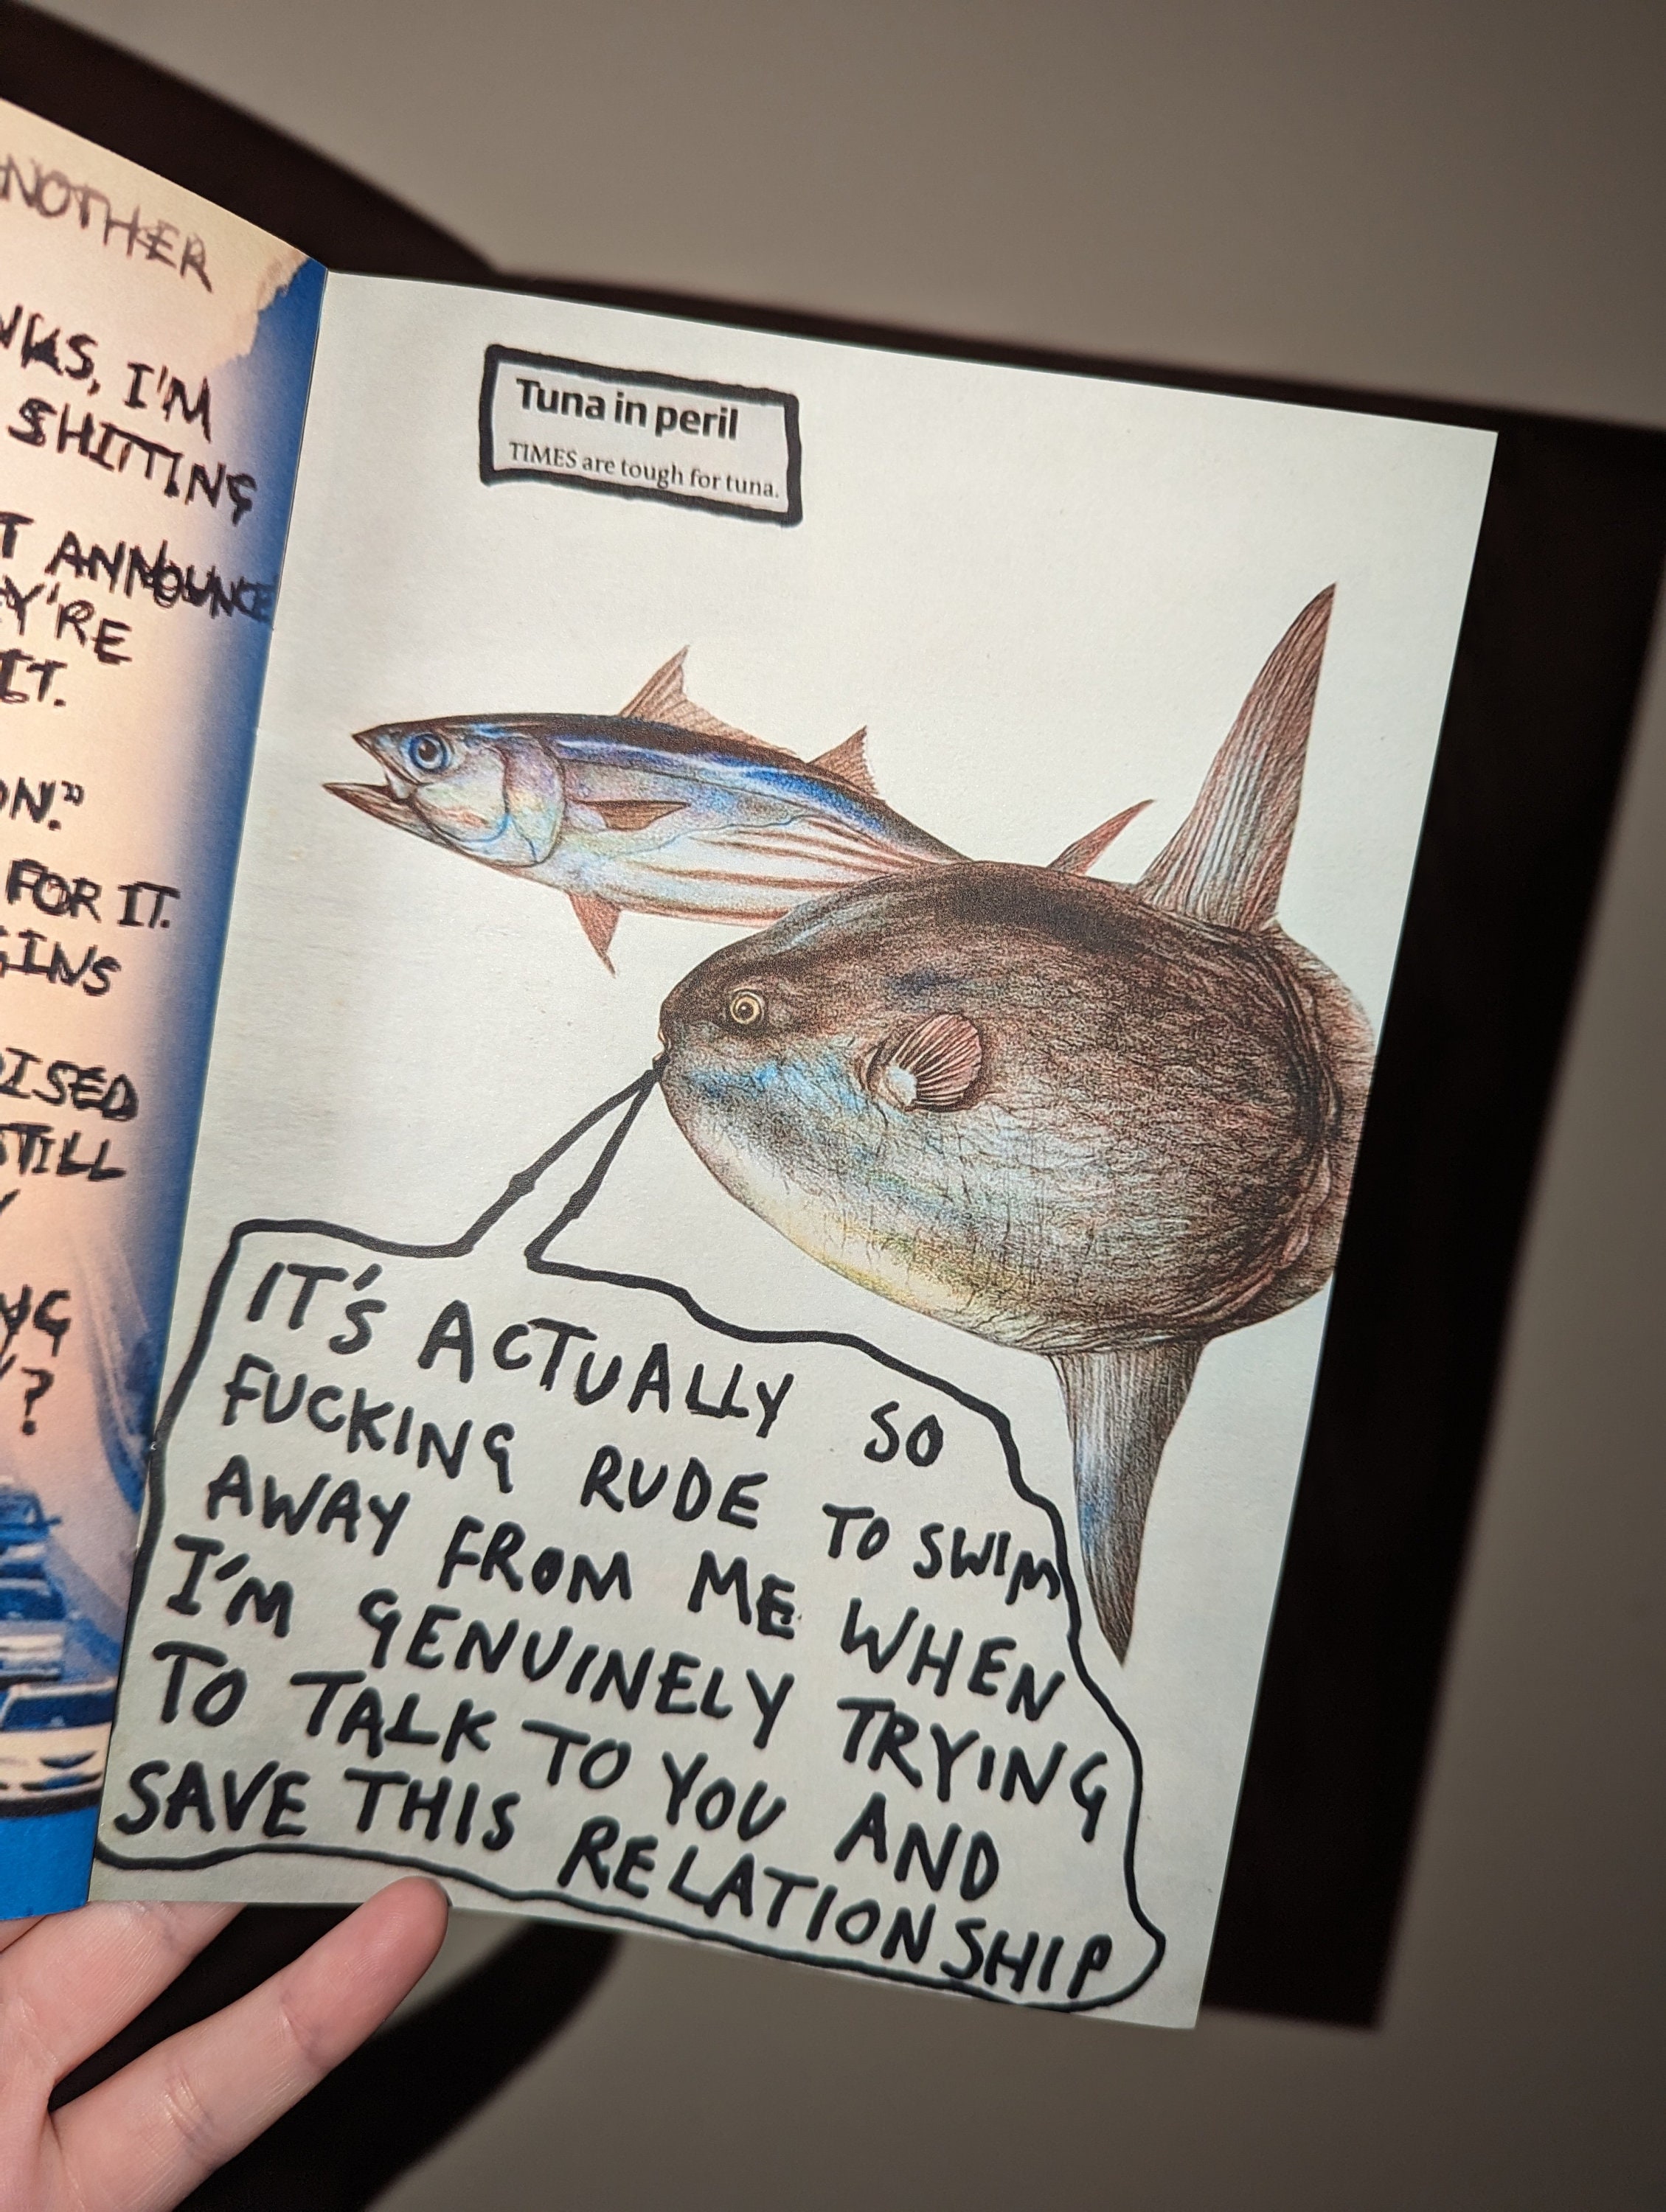 NOTHER
I'M
SHITTING
ANNOUNCE
EY'RE
IT.
ON."
FOR IT.
GINS
OISED
STILL
NG
?
Tuna in peril
TIMES are tough for tuna.
IT'S ACTUALLY SO
FUCKING RUDE TO SWIM
AWAY FROM ME WHEN
I'M GENUINELY TRYING
TO TALK TO YOU AND
SAVE THIS RELATIONSHIP